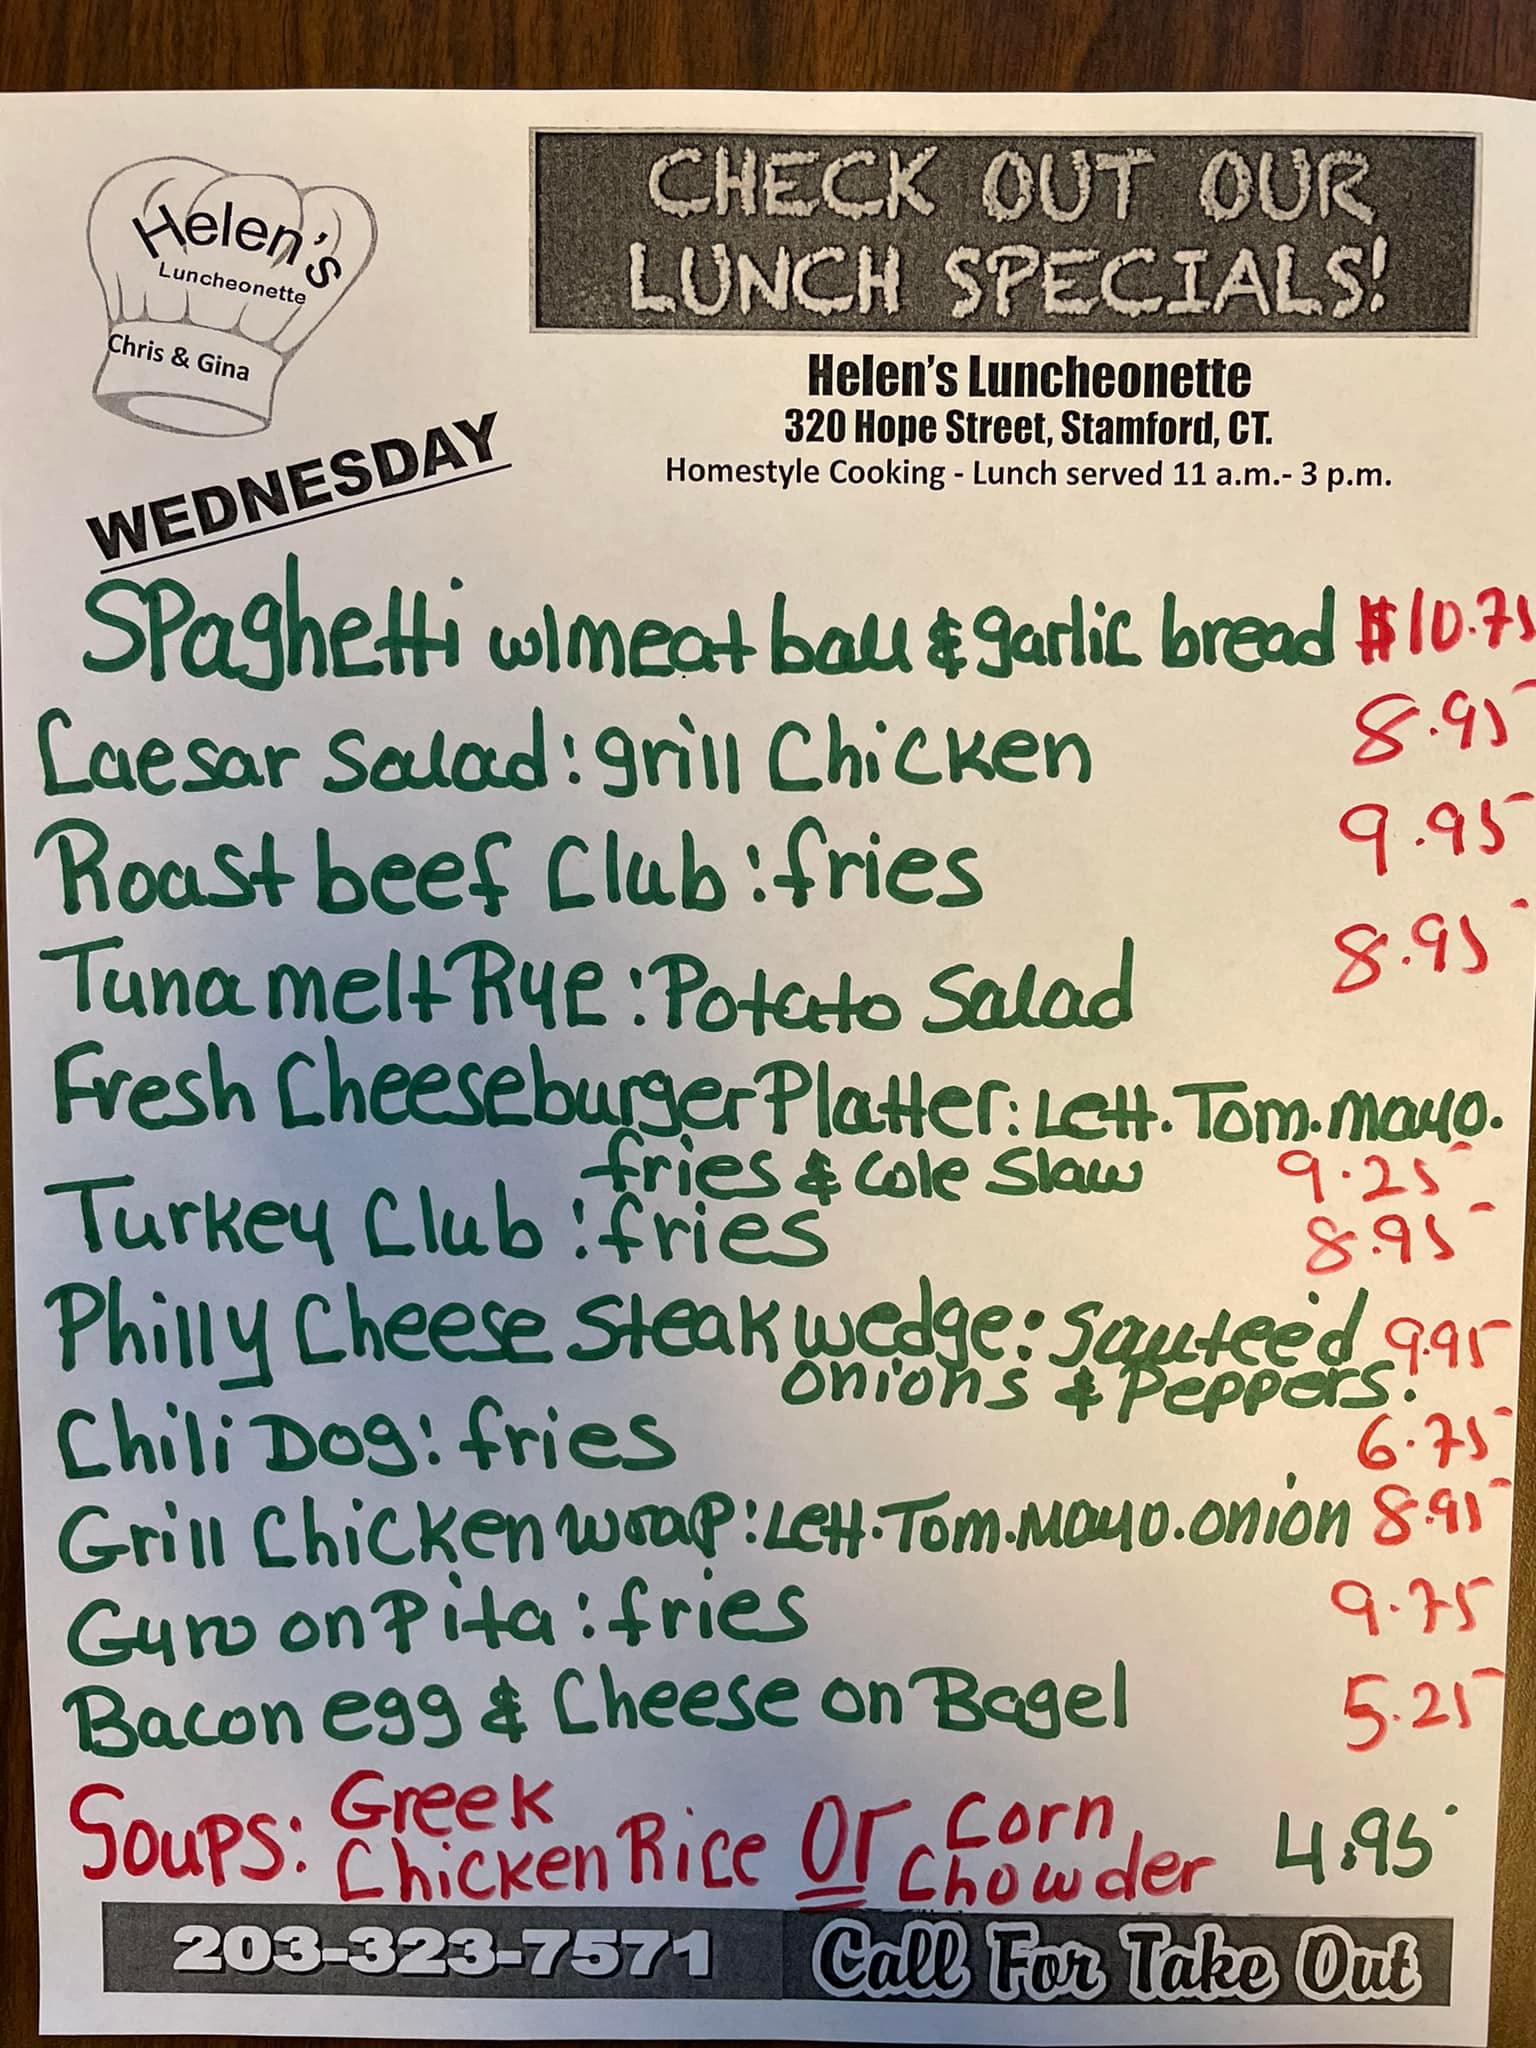 Helen's
Luncheonette
Chris & Gina
CHECK OUT OUR
LUNCH SPECIALS!
Helen's Luncheonette
320 Hope Street, Stamford, CT.
Homestyle Cooking - Lunch served 11 a.m.- 3 p.m.
WEDNESDAY
Spaghetti w/meat ball & garlic bread $10.75
Caesar Salad: grill Chicken 8.95
Roast beef Club: fries 9.95
Tuna melt Rye: Potato Salad 8.95
Fresh Cheeseburger Platter: Lett. Tom. mayo.
fries & Cole Slaw 9.25
Turkey Club: fries 8.95
Philly Cheese Steak wedge: Sauteed 9.95
onions & Peppers.
Chili Dog: fries 6.75
Grill Chicken wrap: Lett. Tom. Mayo. onion 8.95
Gyro on Pita: fries 9.75
Bacon egg & Cheese on Bagel 5.25
Soups: Greek Chicken Rice Or Corn Chowder 4.95
203-323-7571 Call For Take Out